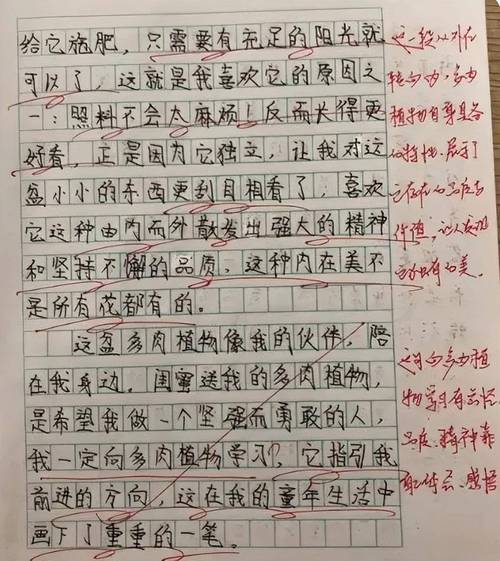 给它施肥，只需要有充足的阳光就
可以了，这就是我喜欢它的原因之
一：照料不会太麻烦！反而长得更
好看，正是因为它独立，让我对这
盆小小的东西更刮目相看了，喜欢
它这种由内而外散发出强大的精神
和坚持不懈的品质，这种内在美不
是所有花都有的。
这盆多肉植物像我的伙伴，陪
在我身边。闺蜜送我的多肉植物，
是希望我做一个坚强而勇敢的人，
我一定向多肉植物学习？它指引我
前进的方向，这在我的童年生活中
画下了重重的一笔。
这一段从外在
转向内，多肉
植物自身具备
的特性，展示了
它存在的
价值，让人
美。
多肉植
物学习
品质、精神
感悟